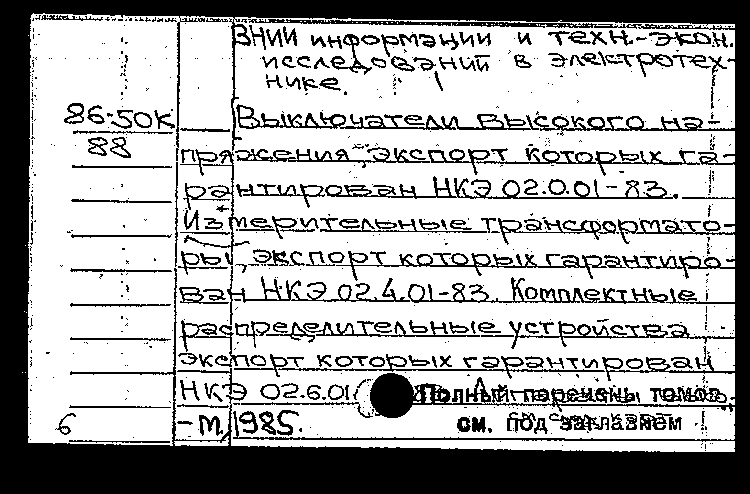 ВНИИ информации и техн.-экон.
исследований в электротех-
нике.
86-50К
88
Выключатели высокого на-
пряжения, экспорт которых га-
рантирован НКЭ 02.0.01-83.
Измерительные трансформато-
ры, экспорт которых гарантиро-
ван НКЭ 02.4.01-83. Комплектные
распределительные устройства
экспорт которых гарантирован
НКЭ 02.6.01 Полный перечень томов
6
-М, 1985. см. под заглавием